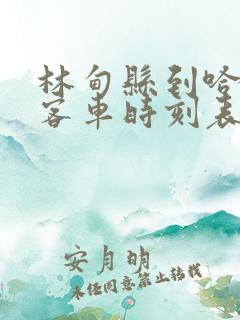 林甸縣到哈
客車時刻表
安月明
未经同意禁止转载